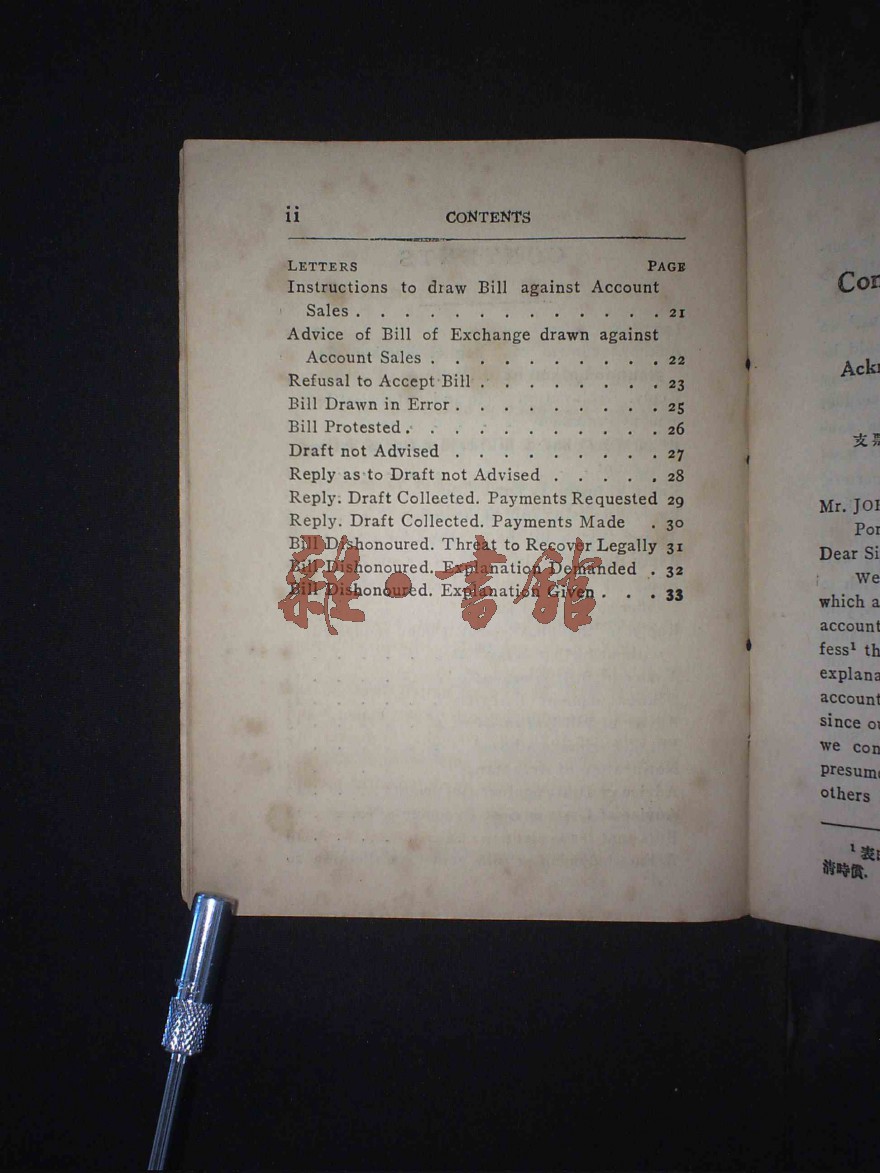 ii CONTENTS
LETTERS PAGE
Instructions to draw Bill against Account
Sales . . . . . . . . . . . . . 21
Advice of Bill of Exchange drawn against
Account Sales . . . . . . . . . . 22
Refusal to Accept Bill . . . . . . . . 23
Bill Drawn in Error . . . . . . . . . 25
Bill Protested . . . . . . . . . . . 26
Draft not Advised . . . . . . . . . 27
Reply as to Draft not Advised . . . . . 28
Reply. Draft Colleeted. Payments Requested 29
Reply. Draft Collected. Payments Made . 30
Bill Dishonoured. Threat to Recover Legally 31
Bill Dishonoured. Explanation Demanded . 32
Bill Dishonoured. Explanation Given . . . 33
雜·書館
Con
Ackn
支票
Mr. JOH
Por
Dear Si
We
which a
account
fess¹ th
explana
account
since ou
we con
presume
others
¹ 表
清時償.